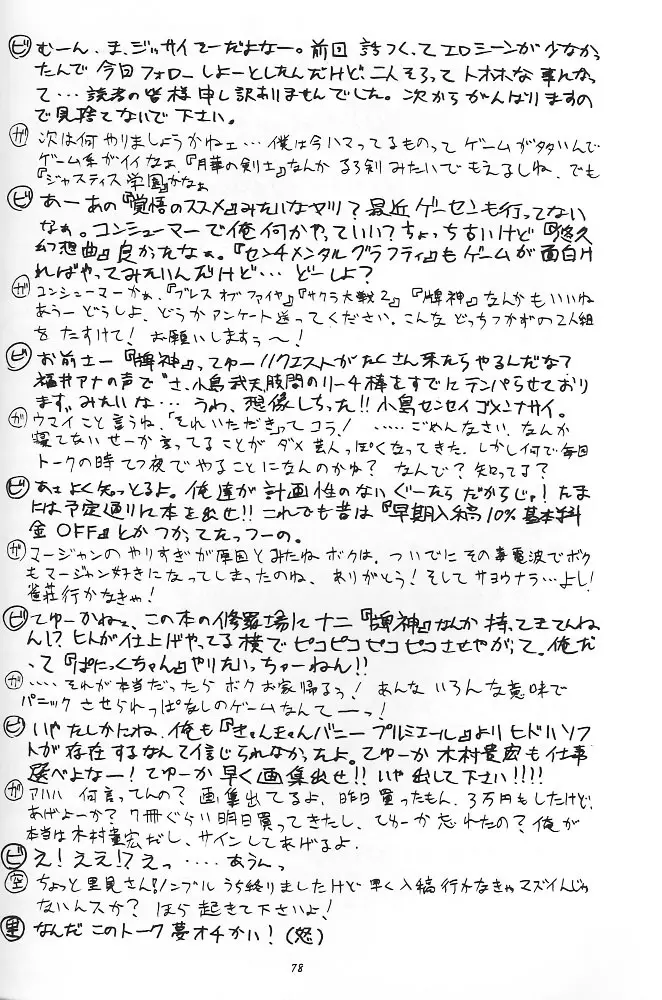 ビ むーん、ま、ジッサイそーだよなー。前回 詰つくってエロシーンが少なかっ
たんで今日フォローしよーとしたんだけど、二人そろってトホホな事んなっ
て…読者の皆様申し訳ありませんでした。次からがんばりますの
で見捨てないで下さい。
ガ 次は何やりましょうかねェ…僕は今ハマってるものってゲームが多いんで
ゲーム系がイイなぁ、『月華の剣士』なんか るろ剣みたいでもえるしね、でも
『ジャスティス学園』かなぁ
ビ あーあの『覚悟のススメ』みたいなヤツ？最近ゲーセンも行ってない
なぁ。コンシューマーで俺何かやっていい？ちょっち古いけど『悠久
幻想曲』良かったなぁ。『センチメンタルグラフティ』もゲームが面白け
ればやってみたいんだけど…どーしよ？
ガ コンシューマーかぁ、『ブレスオブファイヤ』『サクラ大戦2』『牌神』なんかもいいね
あうーどうしよ、どうかアンケート送ってください。こんなどっちつかずの2人組
をたすけて！お願いしますぅ〜！
ビ お前さー『牌神』ってゆーリクエストがたくさん来たらやるんだな？
福井アナの声でさ、小島武夫股間のリーチ棒をすでにテンパらせており
ます。みたいな…うわ、想像しちった!!小島センセイゴメンナサイ。
ガ ウマイこと言うね、「それいただき」ってコラ！……ごめんなさい、なんか
寝てないせーか言ってることがダメ芸人っぽくなってきた。しかし何で毎回
トークの時てつ夜でやることになんのかね？なんで？知ってる？
ビ あぁよく知っとるよ。俺達が計画性のないぐーたらだからじゃ！たま
には予定通りに本を出せ!!これでも昔は『早期入稿10%基本料
金OFF』とかつかってたっつーの。
ガ マージャンのやりすぎが原因とみたねボクは、ついでにその毒電波でボク
もマージャン好きになってしまったのね、ありがとう！そしてサヨウナラ…よし！
雀荘行かなきゃ！
ビ てゆーかねェ、この本の修羅場にナニ『牌神』なんか持ってきてんね
ん!?ヒトが仕上げやってる横でピコピコピコピコさせやがって。俺だ
って『ぱにっくちゃん』やりたいっちゃーねん!!
ガ ……それが本当だったらボクお家帰るっ！あんないろんな意味で
パニックさせられっぱなしのゲームなんてーっ！
ビ いやたしかにね、俺も『きゃんきゃんバニープルミエール』よりヒドいソフ
トが存在するなんて信じられなかったよ。てゆーか木村貴宏も仕事
選べよなー！てゆーか早く画集出せ!!いや出して下さい!!!!
ガ アハハ何言ってんの？画集出てるよ、昨日買ったもん。3万円もしたけど、
あげよーか？7冊ぐらい明日買ってきたし、てゆーか忘れたの？俺が
本当は木村貴宏だし、サインしてあげるよ。
ビ え！ええ!?えっ……あうんっ
空 ちょっと里見さん！ノンブルうち終りましたけど早く入稿行かなきゃマズイんじゃ
ないんスか？ほら起きて下さいよ！
里 なんだこのトーク夢オチかい！（怒）
78